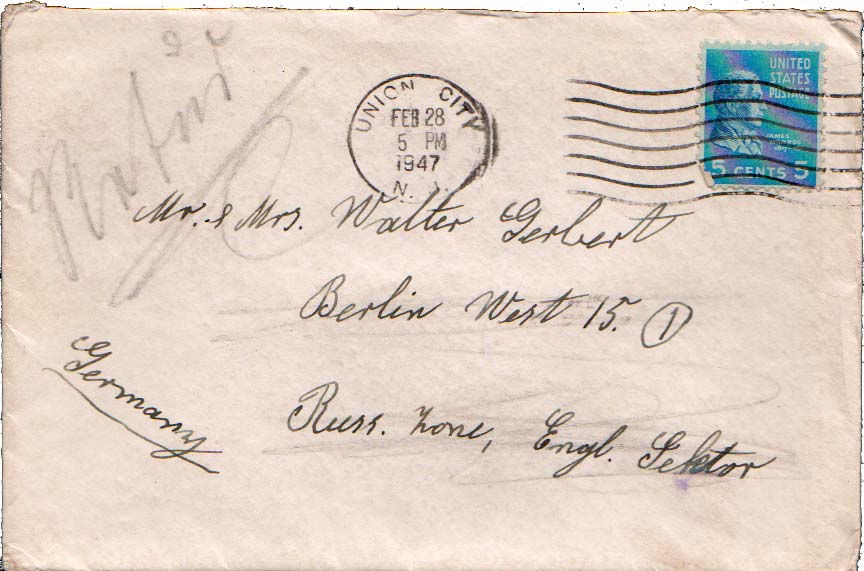 UNION CITY
FEB 28
5 PM
1947
N. J.
UNITED
STATES
POSTAGE
JAMES
MONROE
5 CENTS 5
Mr. & Mrs. Walter Gerbert
Berlin West 15. 1
Germany
Russ. Zone, Engl. Sektor